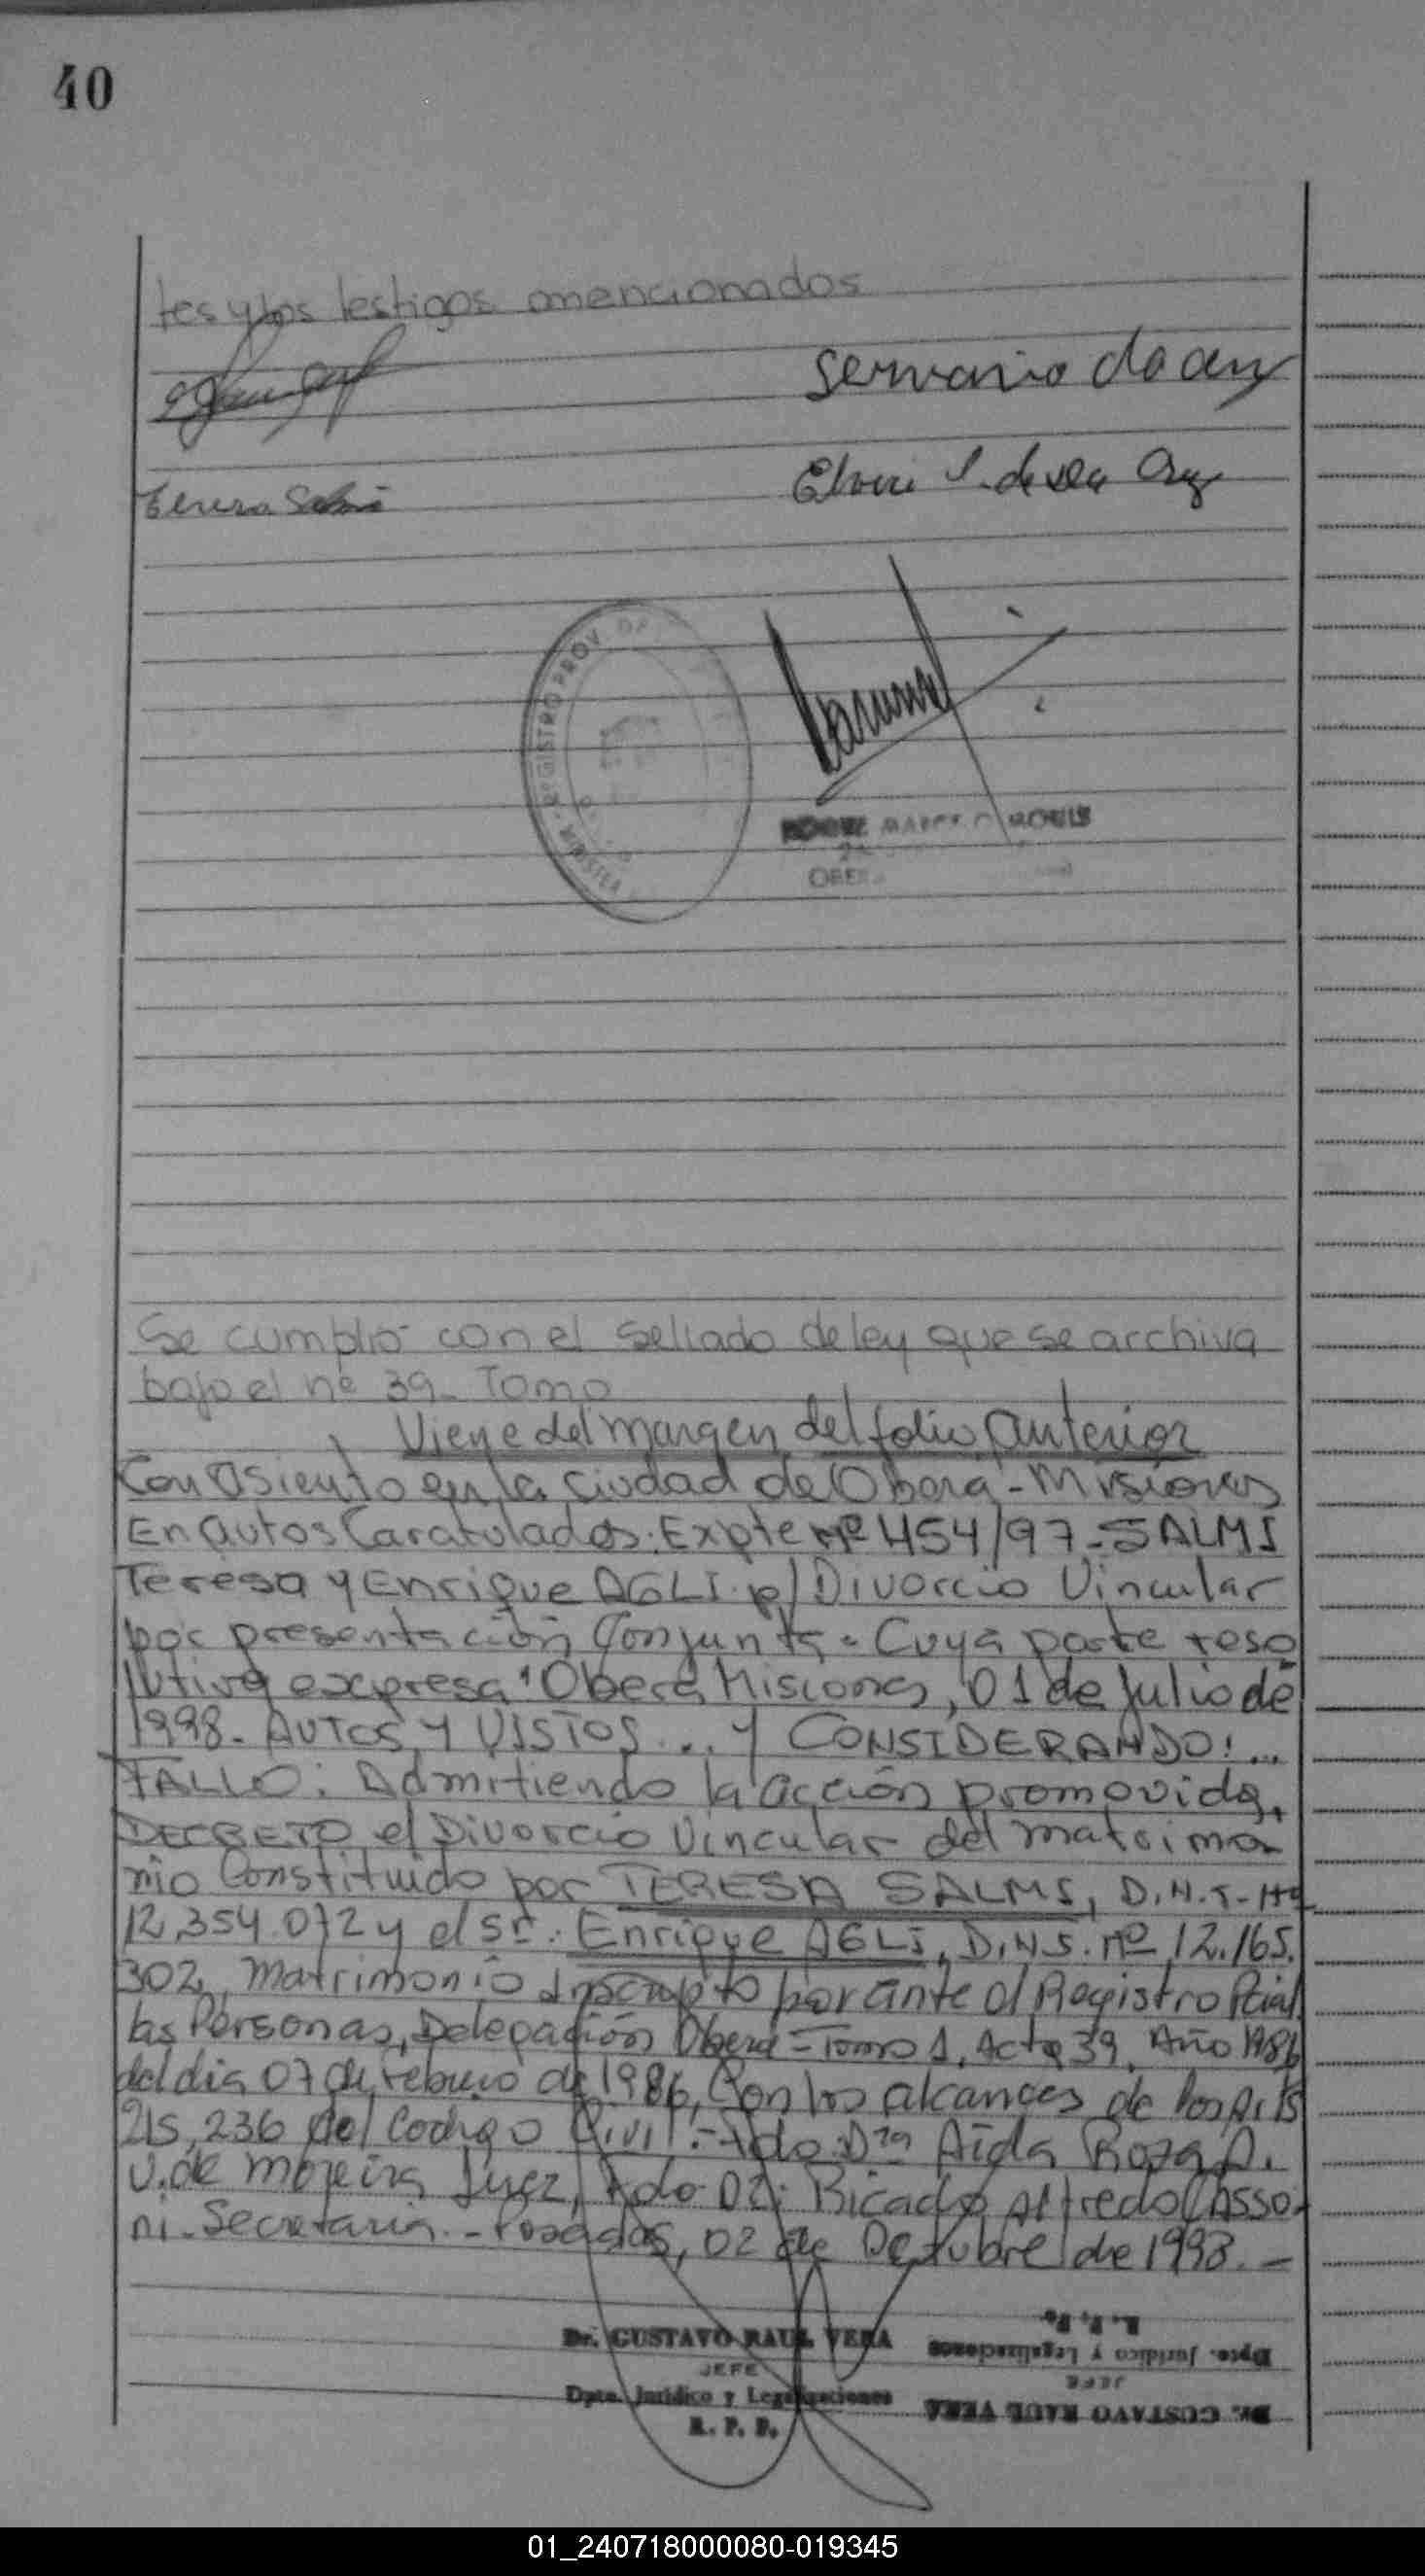 40
tes y los testigos mencionados
Servanio da
Teresa
Elvira S. de da Cruz
REGISTRO PROV. DE
MINISTER
ROQUE
OBER
Se cumplio con el sellado de ley que se archiva
bajo el nº 39_ Tomo
Viene del margen del folio anterior
Con asiento en la Ciudad de Oberá - Misiones
En autos Caratulados: Expte Nº 454/97 - SALMI
Teresa y Enrique AGLI p/ Divorcio Vincular
por presentación Conjunta - Cuya parte reso
lutiva expresa "Oberá Misiones, 01 de Julio de
1998 - AUTOS Y VISTOS ... Y CONSIDERANDO: ...
FALLO: Admitiendo la acción promovida,
DECRETO el Divorcio Vincular del matrimo
nio Constituido por TERESA SALMI, D.N.I. Nº
12.354.072 y el Sr. Enrique AGLI, D.N.I. nº 12.165.
302, Matrimonio Inscripto por ante el Registro Pcial
las Personas, Delegación Oberá - Tomo 1, Acta 39, Año 1986
del dia 07 de Febrero de 1986, Con los alcances de los Arts
215, 236 del Codigo Civil. - Fdo: Dra Aida Rosa A.
V. de Moreira Juez, Fdo: Dr: Ricardo Alfredo Casso
ni - Secretaria. - Posadas, 02 de Octubre de 1998. -
Dr. GUSTAVO RAUL VERA
JEFE
Dpto. Jurídico y Legalizaciones
R. P. P.
R. P. P.
Dpto. Jurídico y Legalizaciones
JEFE
Dr. GUSTAVO RAUL VERA
01_240718000080-019345